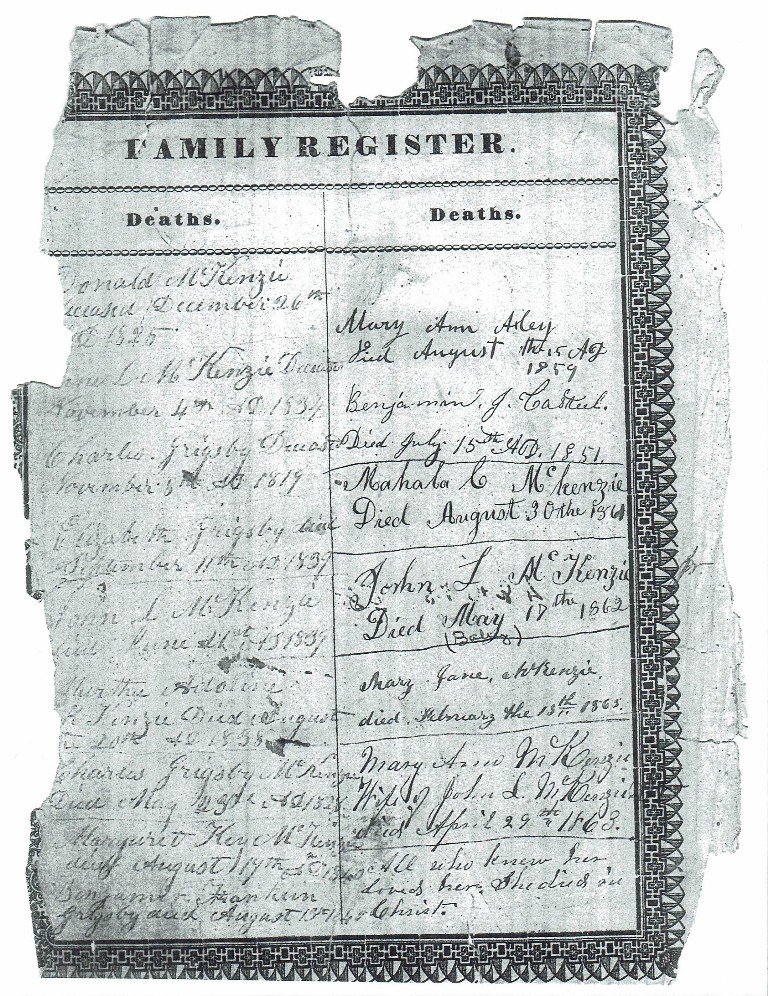 FAMILY REGISTER.
Deaths.
Donald McKenzie
December 26th
1825
McKenzie
November 4th AD
Charles Grigsby
November 5th AD 1819
Elizabeth Grigsby died
September 11th AD 1837
John L McKenzie
died June AD 1839
Adaline
McKenzie Died August
20th AD 1838
Charles Grigsby McKenzie
Died May 23rd AD
Margaret Key McKenzie
died August 17th AD
Benjamin Franklin
Grigsby died August 13th
Deaths.
Mary Ann
Died August the 15 AD
1859
Benjamin J.
Died July 15th AD. 1851.
Mahala C McKenzie
Died August 30the 1861
John L McKenzie
Died May 17the 1862
(Baby)
Mary Jane, McKenzie.
died February the 13th 1865.
Mary Ann McKenzie
Wife of John L. McKenzie
died April 29th 1863.
All who knew her
loved her. She died in
Christ.